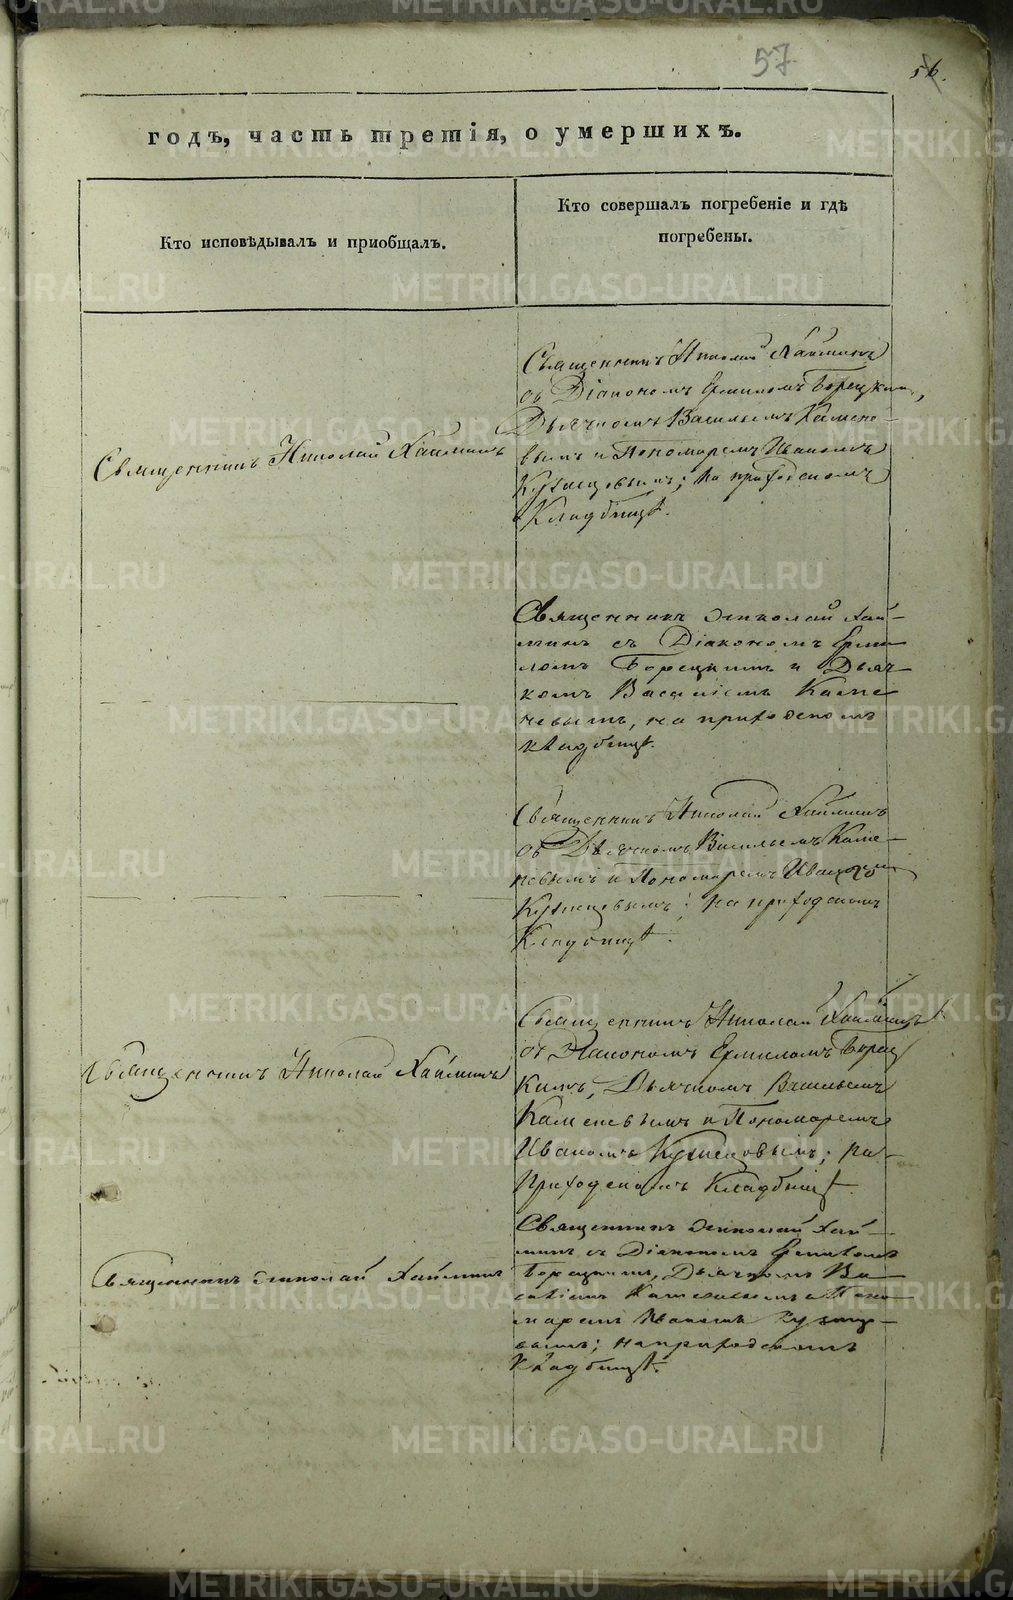 57
56.
годъ, часть третія, о умершихъ.
Кто исповѣдывалъ и приобщалъ.
Кто совершалъ погребеніе и гдѣ
погребены.
Священникъ Николай Хайминъ
Священникъ Николай Хайминъ
съ Діакономъ Ермиломъ Борецкимъ,
Дьячкомъ Васильемъ Камене-
вымъ и Пономаремъ Иваномъ
Кузнецовымъ; на приходскомъ
Кладбищѣ.
Священникъ Николай Хай-
минъ съ Діакономъ Ерми
ломъ Борецкимъ и Дьяч-
комъ Василіемъ Каме
невымъ, на приходскомъ
кладбищѣ.
Священникъ Николай Хайминъ
съ Дьячкомъ Васильемъ Каме-
невымъ и Пономаремъ Иваномъ
Кузнецовымъ; на приходскомъ
Кладбищѣ.
Священникъ Николай Хайминъ
Священникъ Николай Хайминъ
съ Діакономъ Ермиломъ Борец
кимъ, Дьячкомъ Васильемъ
Каменевымъ и Пономаремъ
Иваномъ Кузнецовымъ; на
Приходскомъ Кладбищѣ.
Священникъ Николай Хайминъ
Священникъ Николай Хай-
минъ съ Діакономъ Ермиломъ
Борецкимъ, Дьячкомъ Ва
силіемъ Каменевымъ и Поно
маремъ Иваномъ Кузнецо-
вымъ; на приходскомъ
кладбищѣ.
METRIKI.GASO-URAL.RU